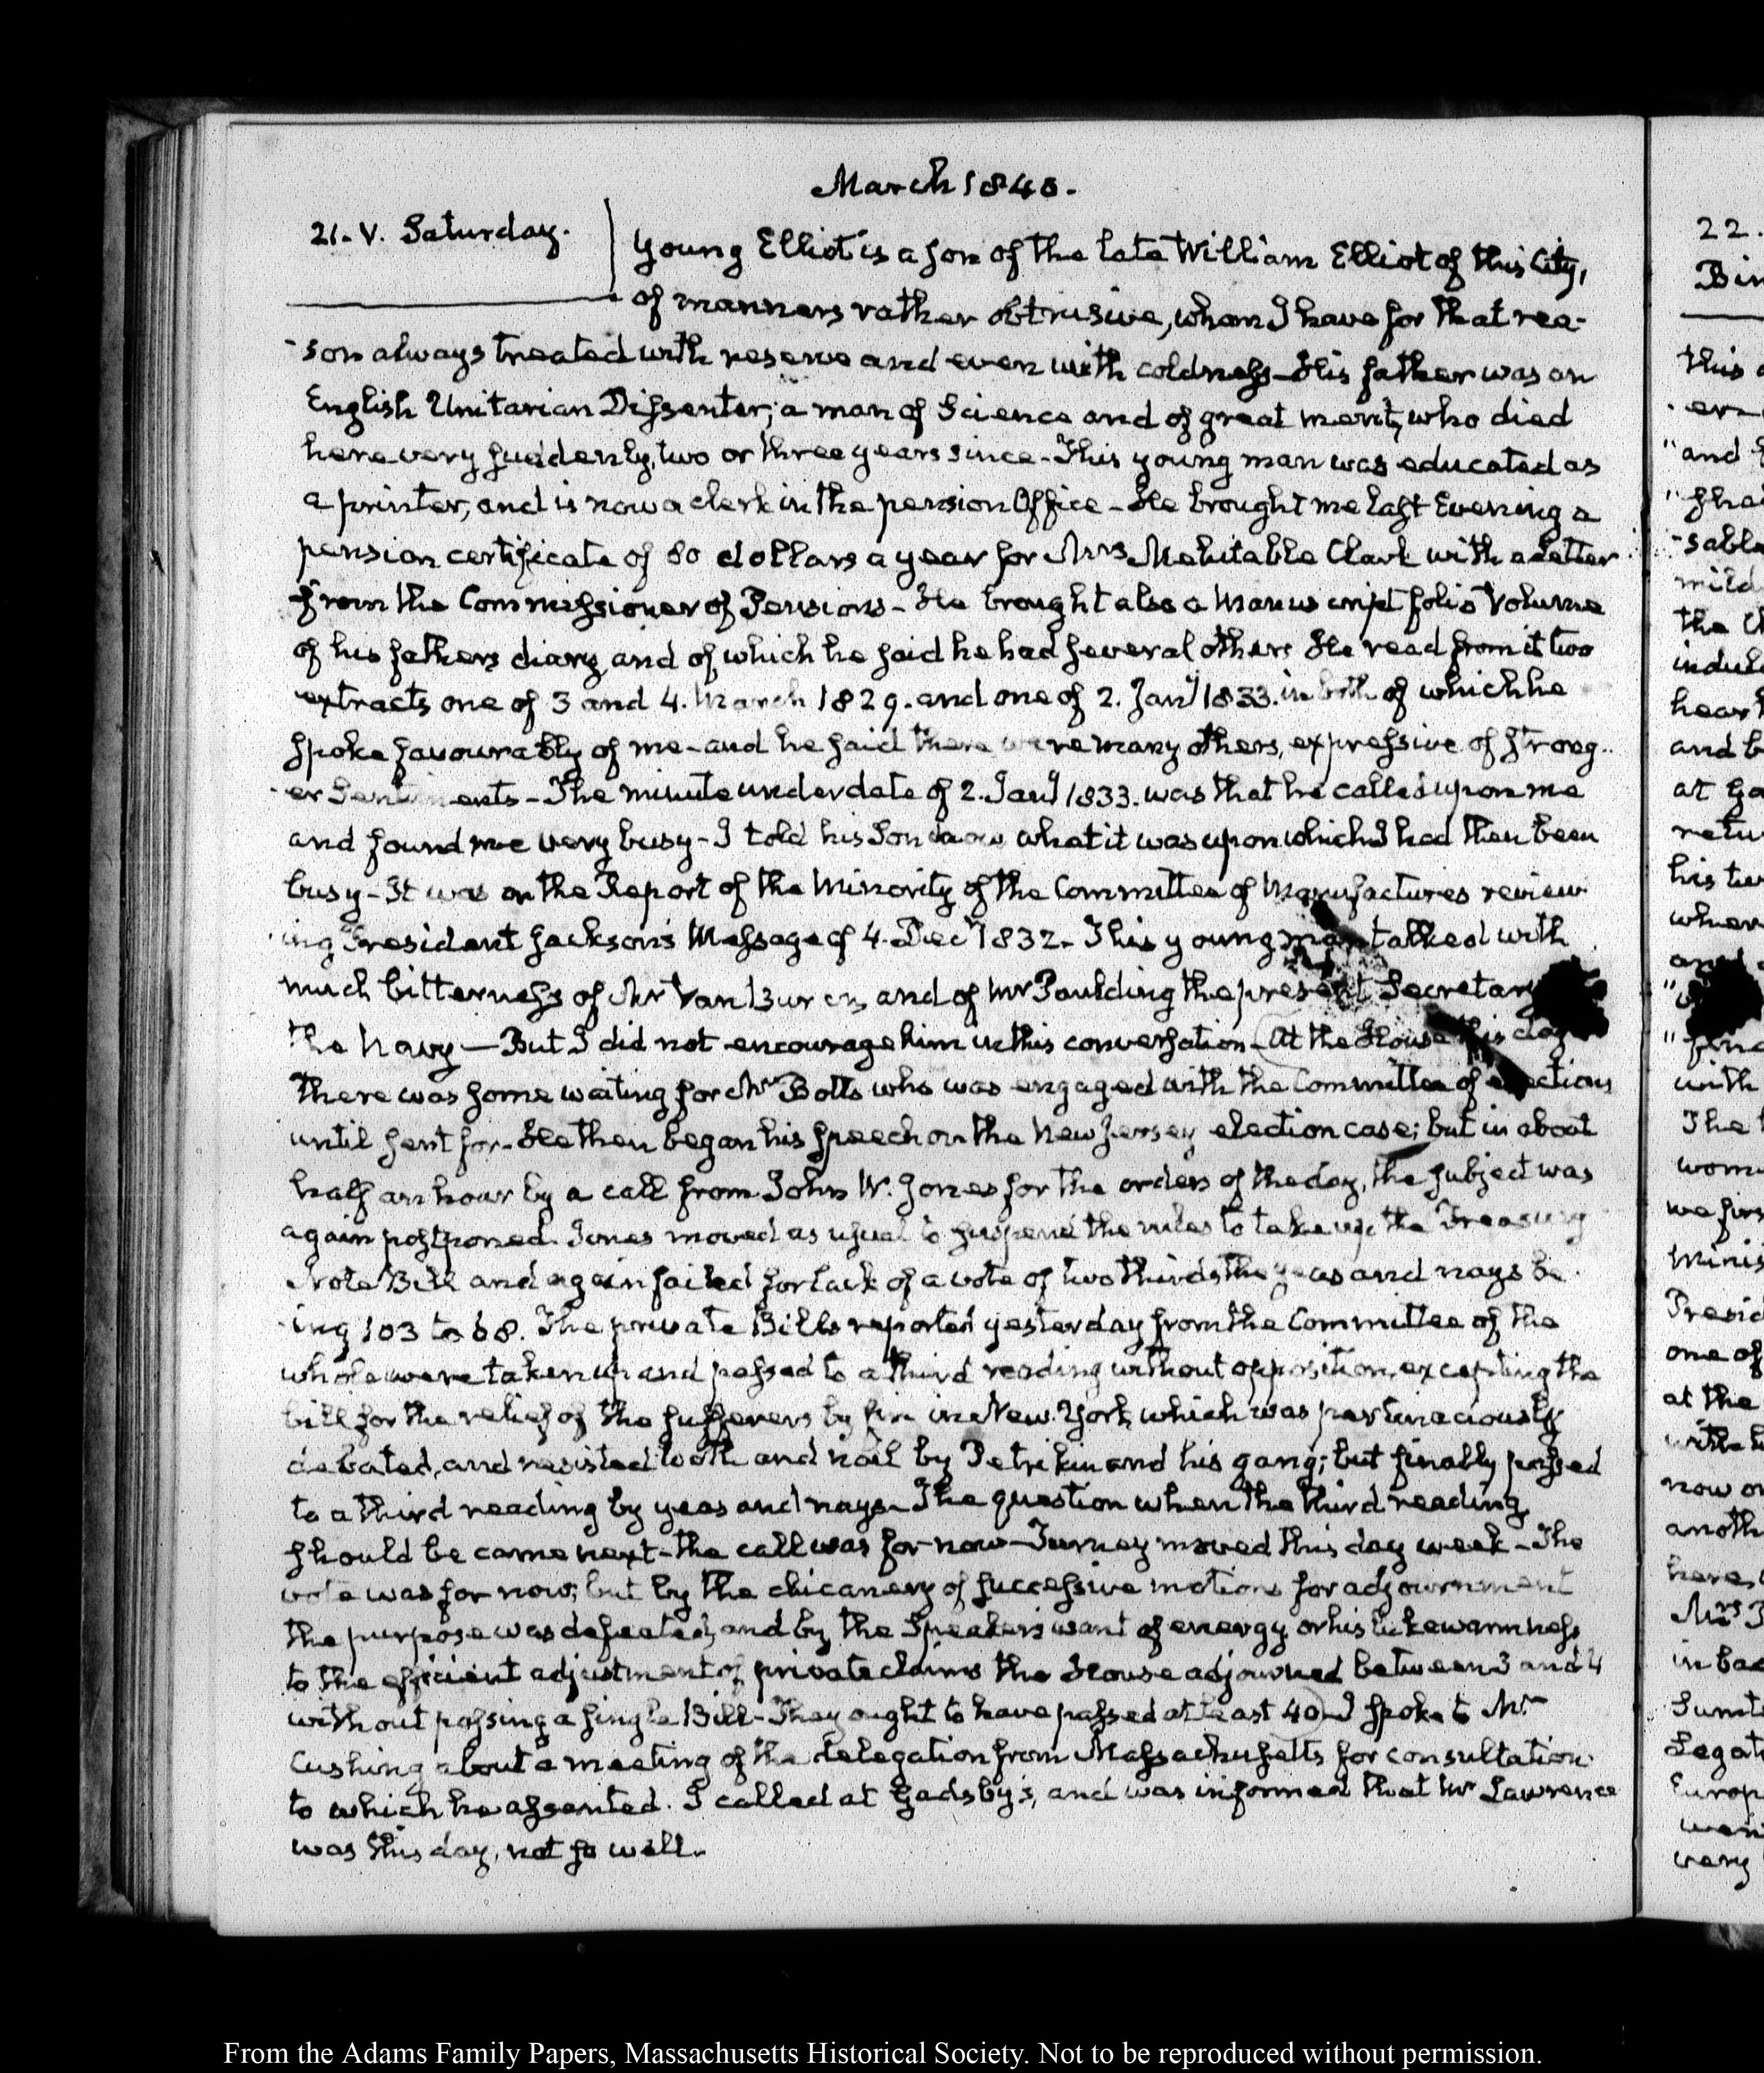 March 1840.
21. V. Saturday.
Young Elliot is a son of the late William Elliot of this City,
of manners rather obtrusive, whom I have for that rea-
-son always treated with reserve and even with coldness—His father was an
English Unitarian Dissenter; a man of Science and of great merit, who died
here very suddenly, two or three years since—This young man was educated as
a printer, and is now a clerk in the pension Office—He brought me last Evening a
pension certificate of 80 dollars a year for Mrs Mehitable Clark with a letter
from the Commissioner of Pensions—He brought also a Manuscript folio Volume
of his fathers diary, and of which he said he had several others He read from it two
extracts one of 3 and 4. March 1829. and one of 2. Jany 1833. in both of which he
spoke favourably of me—and he said there were many others, expressive of strong-
-er Sentiments—The minute under date of 2. Jany 1833. was that he called upon me
and found me very busy—I told his Son what it was upon which I had then been
busy—It was on the Report of the Minority of the Committee of Manufactures review
-ing President Jackson's Message of 4. Decr 1832—This young man talked with
much bitterness of Mr Van Buren, and of Mr Paulding the present Secretary
the Navy—But I did not encourage him in this conversation—At the House this day
there was some waiting for Mr Botts who was engaged with the Committee of elections
until sent for—He then began his speech on the New Jersey election case; but in about
half an hour by a call from John W. Jones for the orders of the day, the subject was
again postponed. Jones moved as usual to suspend the rules to take up the Treasury
Note Bill and again failed for lack of a vote of two thirds, the yeas and nays be
-ing 103 to 68. The private Bills reported yesterday from the Committee of the
whole were taken up and passed to a third reading without opposition, excepting the
bill for the relief of the sufferers by fire in New-York, which was pertinaciously
debated, and resisted tooth and nail by Petrikin and his gang; but finally passed
to a third reading by yeas and nays—The question when the third reading
should be came next—the call was for now—Turney moved this day week—The
vote was for now; but by the chicanery of successive motions for adjournment
the purpose was defeated, and by the Speakers want of energy or his lukewarmness
to the efficient adjustment of private claims the House adjourned between 3 and 4
without passing a single Bill—They ought to have passed at least 40—I spoke to Mr
Cushing about a meeting of the delegation from Massachusetts for consultation
to which he assented. I called at Gadsby's, and was informed that Mr Lawrence
was this day, not so well.
22.
Bin
this
er
"and
"sha
-sable
mild
the
indul
hear
and
at
retu
his
wher
with
The
wom
we
Minis
Presid
one of
at the
with
now
anoth
here
Mrs
in
Legat
Europ
very
From the Adams Family Papers, Massachusetts Historical Society. Not to be reproduced without permission.